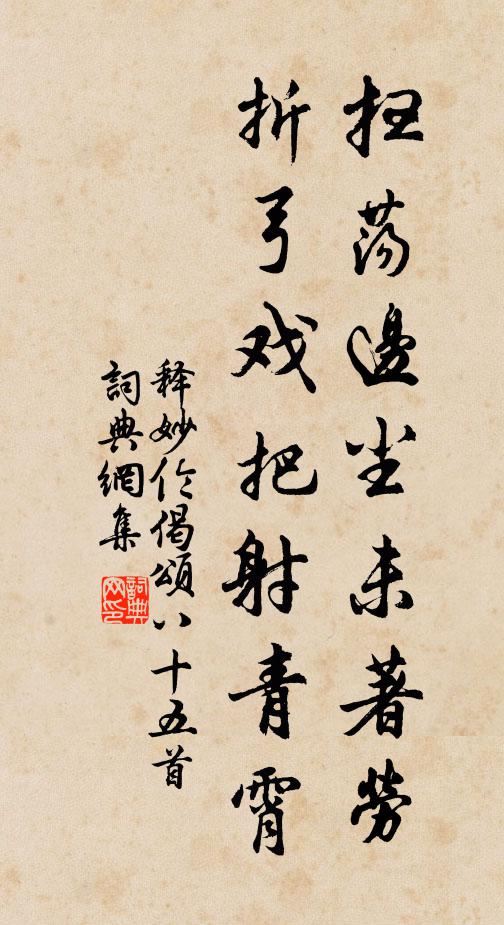 扫荡邊尘未著勞
折弓戏把射青霄
释妙伦偈頌八十五首
詞典網集
詞典网印